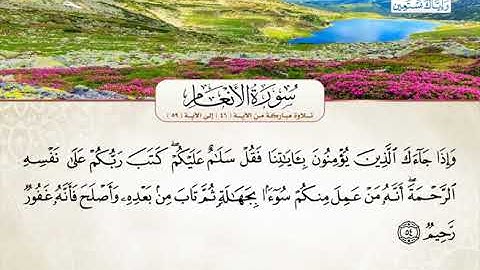 وإياك نستعين
سُورَةُ الْأَنْعَامِ
تلاوة مباركة من الآية (٤٦) إلى الآية (٥٩)
وَإِذَا جَآءَكَ ٱلَّذِينَ يُؤْمِنُونَ بِـَٔايَٰتِنَا فَقُلْ سَلَٰمٌ عَلَيْكُمْ ۖ كَتَبَ رَبُّكُمْ عَلَىٰ نَفْسِهِ
ٱلرَّحْمَةَ ۖ أَنَّهُۥ مَنْ عَمِلَ مِنكُمْ سُوٓءًۢا بِجَهَٰلَةٍ ثُمَّ تَابَ مِنۢ بَعْدِهِۦ وَأَصْلَحَ فَأَنَّهُۥ غَفُورٌ
رَّحِيمٌ ۝٥٤